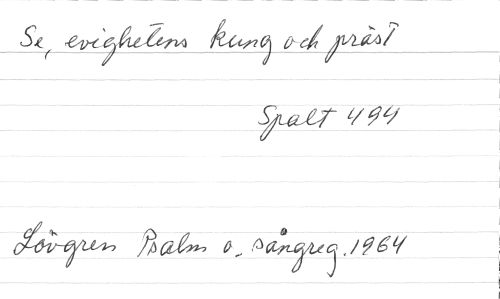 Se, evighetens kung och präst
Spalt 494
Lövgren Psalm o. sångreg. 1964